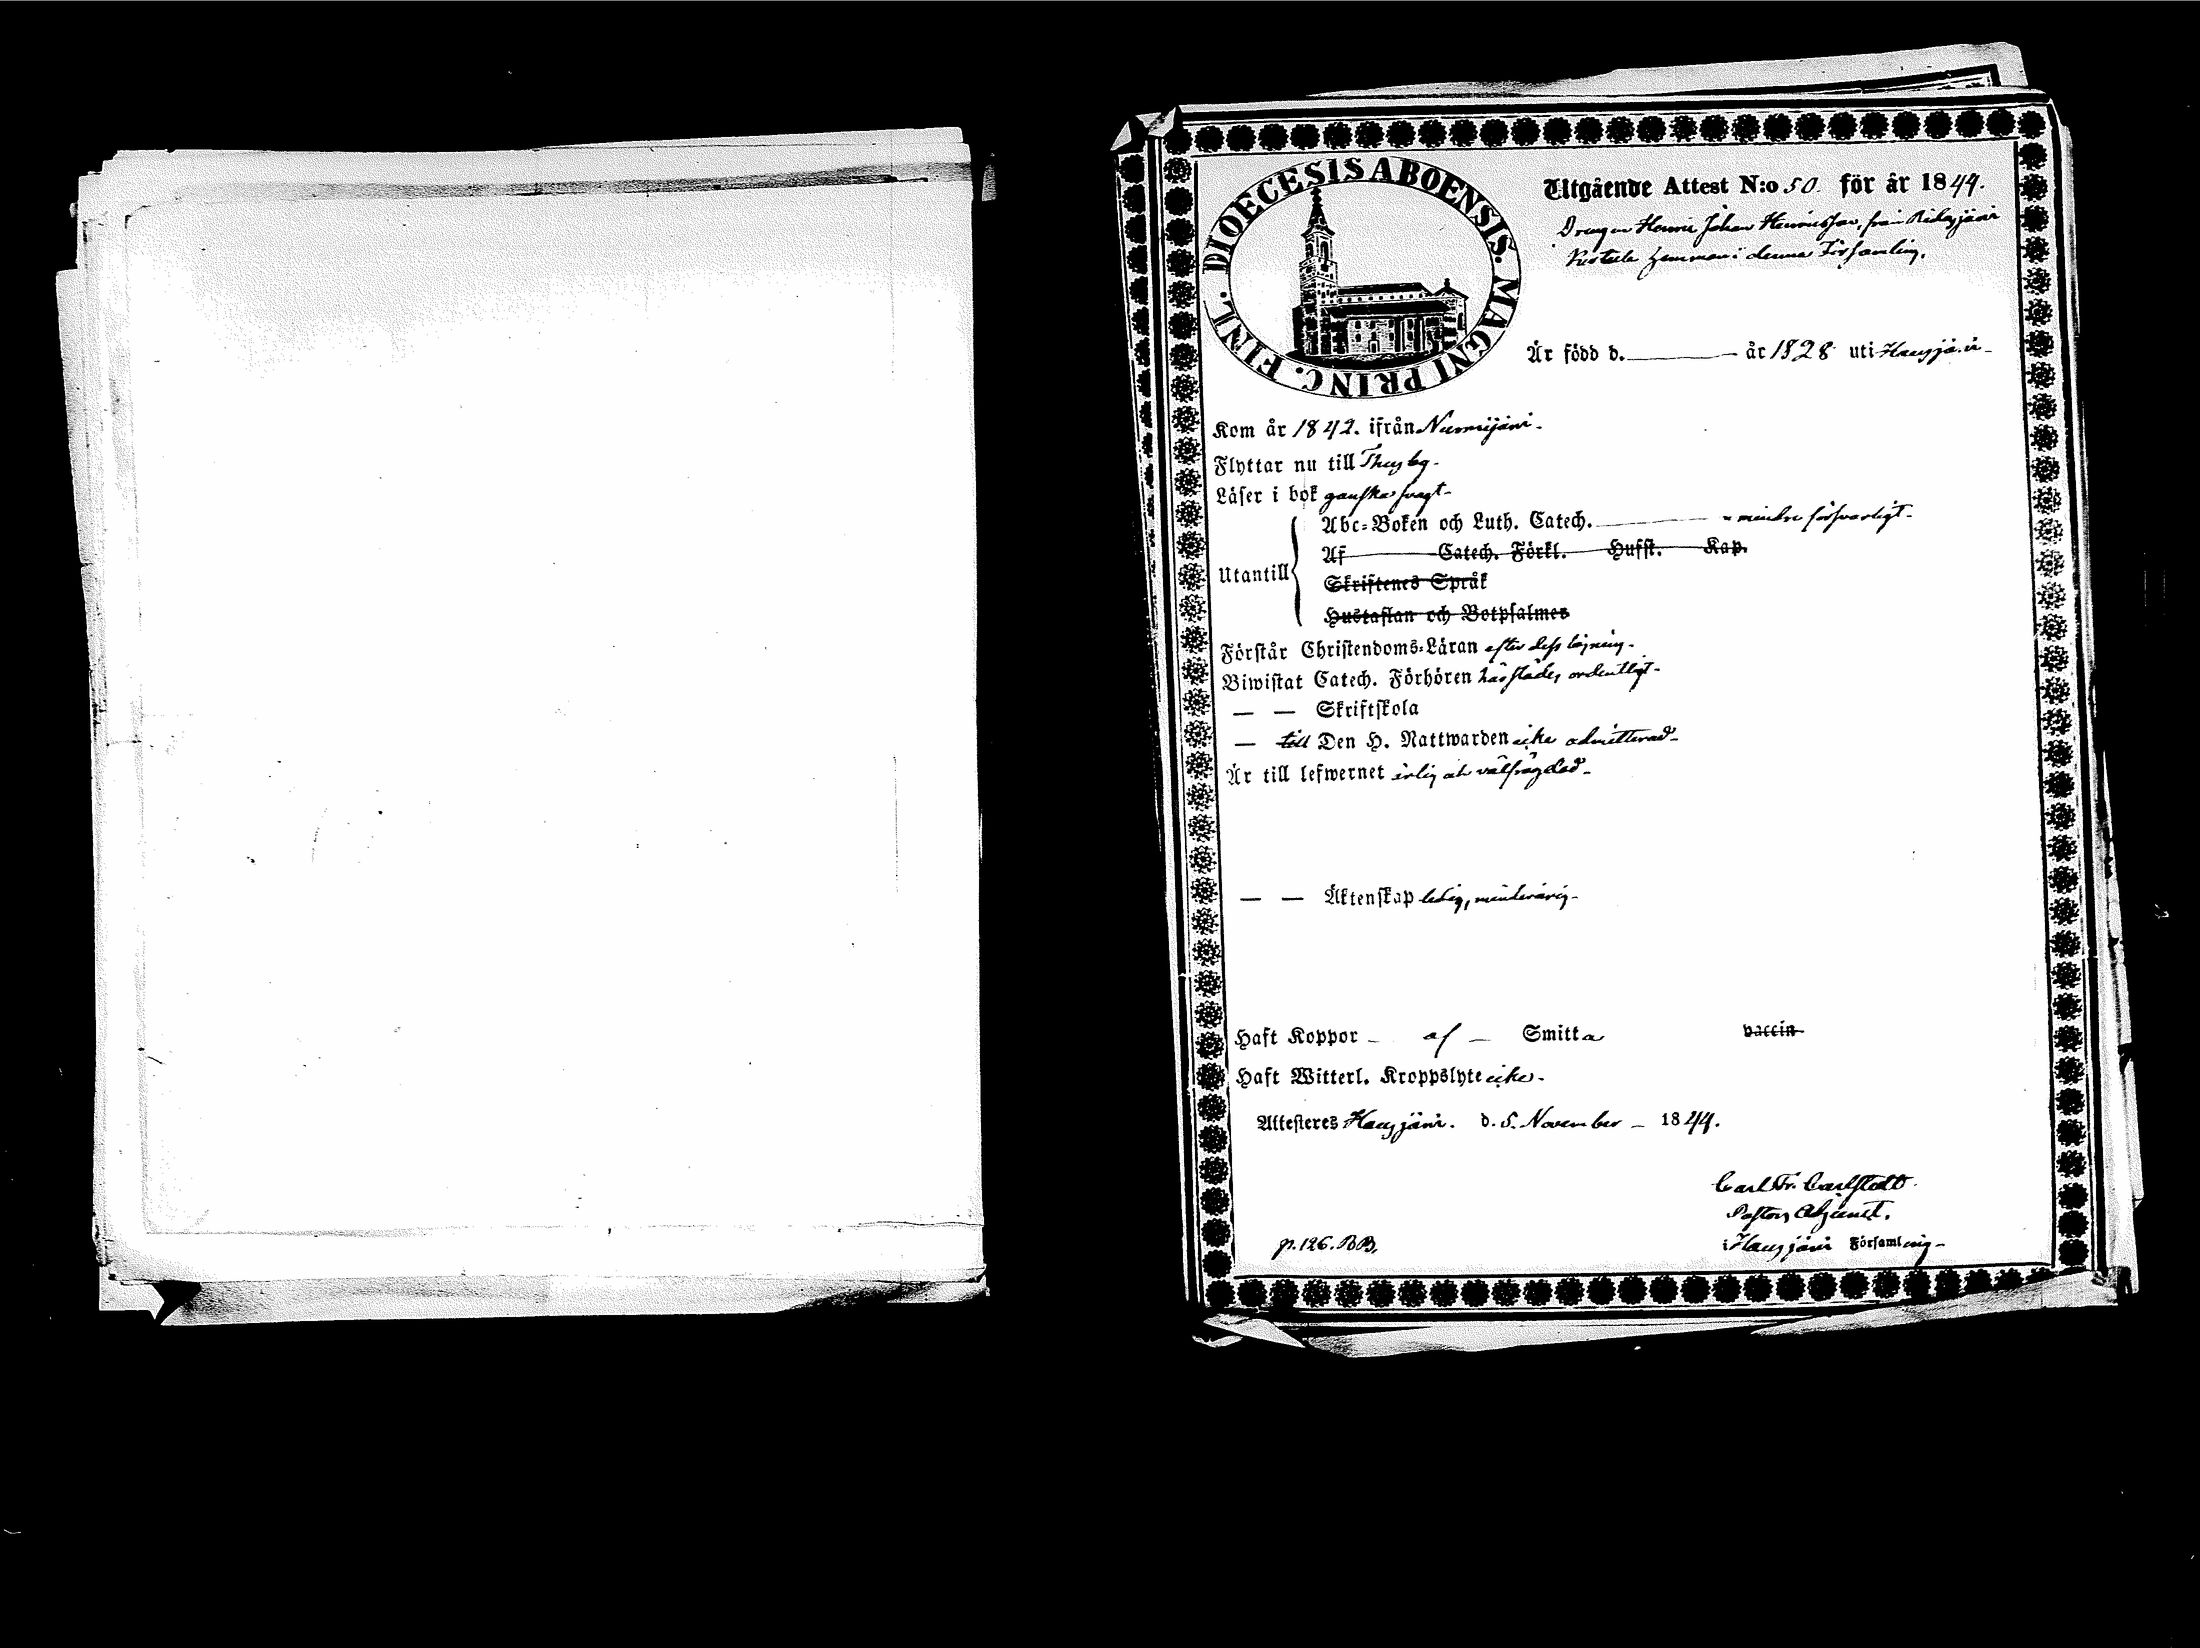 DIOECESIS ABOENSIS. MAGNI PRINC. FINL.
Utgående Attest N:o 50. för år 1844.
Drengen Henric Johan Henricsson, från
hemman i denna Församling.
Är född d. ——— år 1828 uti Hausjärvi
Kom år 1842. ifrån Nurmijärvi.
Flyttar nu till Thusby.
Läser i bok ganska svagt.
Utantill
Abc-Boken och Luth. Catech. ——— mindre försvarligt.
Af ——— Catech. Förkl. ——— Hufst. ——— Kap.
Skriftenes Språk
Hustaflan och Botpsalmer
Förstår Christendoms-Läran efter dess läsning.
Biwistat Catech. Förhören härstädes ordentligt.
— — Skriftskola
— till Den H. Nattwarden icke admitterad.
Är till lefwernet ärlig och välfrägdad.
— — Äktenskap ledig, minderårig.
Haft Koppor — af — Smitta vaccin
Haft Witterl. Kroppslyte icke.
Attesteres Hausjärvi. d. 5. November — 1844.
Carl Fr. Carlstedt.
Pastors Adjunct.
i Hausjärvi Församling
p. 126. BB.